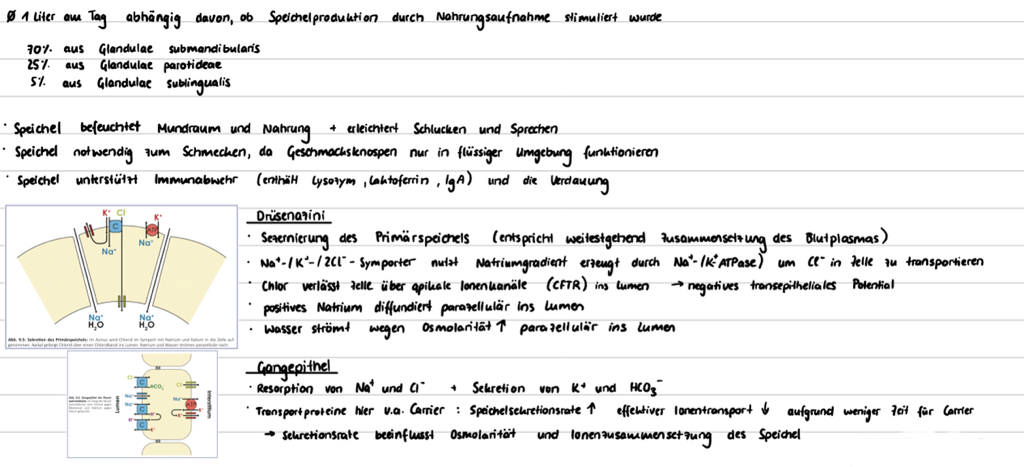 Ø 1 Liter am Tag abhängig davon, ob Speichelproduktion durch Nahrungsaufnahme stimuliert wurde
70% aus Glandulae submandibularis
25% aus Glandulae parotideae
5% aus Glandulae sublingualis
· Speichel befeuchtet Mundraum und Nahrung + erleichtert Schlucken und Sprechen
· Speichel notwendig zum Schmecken, da Geschmacksknospen nur in flüssiger Umgebung funktionieren
· Speichel unterstützt Immunabwehr (enthält Lysozym, Laktoferrin, IgA) und die Verdauung
K⁺ Cl⁻ K⁺
C ATP
Na⁺ Na⁺
Na⁺ Na⁺
H₂O H₂O
Abb. 9.5: Sekretion des Primärspeichels: Im Azinus wird Chlorid im Symport mit Natrium und Kalium in die Zelle auf-
genommen. Apikal gelangt Chlorid über einen Chloridkanal ins Lumen. Natrium und Wasser strömen parazellulär nach.
Drüsenazini
· Sezernierung des Primärspeichels (entspricht weitestgehend Zusammensetzung des Blutplasmas)
· Na⁺-/K⁺-/2Cl⁻-Symporter nutzt Natriumgradient erzeugt durch Na⁺-/K⁺ATPase) um Cl⁻ in Zelle zu transportieren
· Chlor verlässt Zelle über apikale Ionenkanäle (CFTR) ins Lumen → negatives transepitheliales Potential
· positives Natrium diffundiert parazellulär ins Lumen
· Wasser strömt wegen Osmolarität ↑ parazellulär ins Lumen
Lumen
Interstitium
HCO₃⁻
Gangepithel
· Resorption von Na⁺ und Cl⁻ + Sekretion von K⁺ und HCO₃⁻
· Transportproteine hier v.a. Carrier : Speichelsekretionsrate ↑ effektiver Ionentransport ↓ aufgrund weniger Zeit für Carrier
→ Sekretionsrate beeinflusst Osmolarität und Ionenzusammensetzung des Speichel